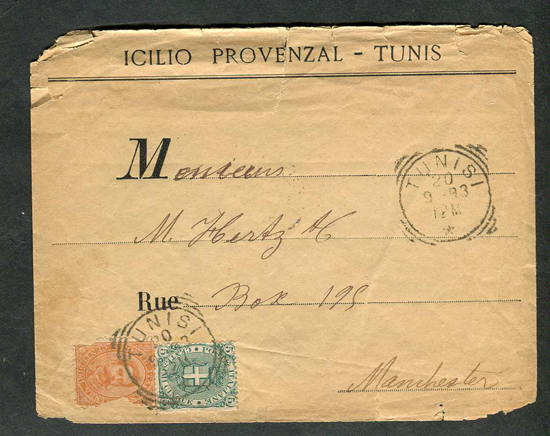 ICILIO PROVENZAL - TUNIS
Messieurs
M. Hertz & C
Rue Box 195
Manchester
TUNISI
20
9 93
12 M
*
TUNISI
20